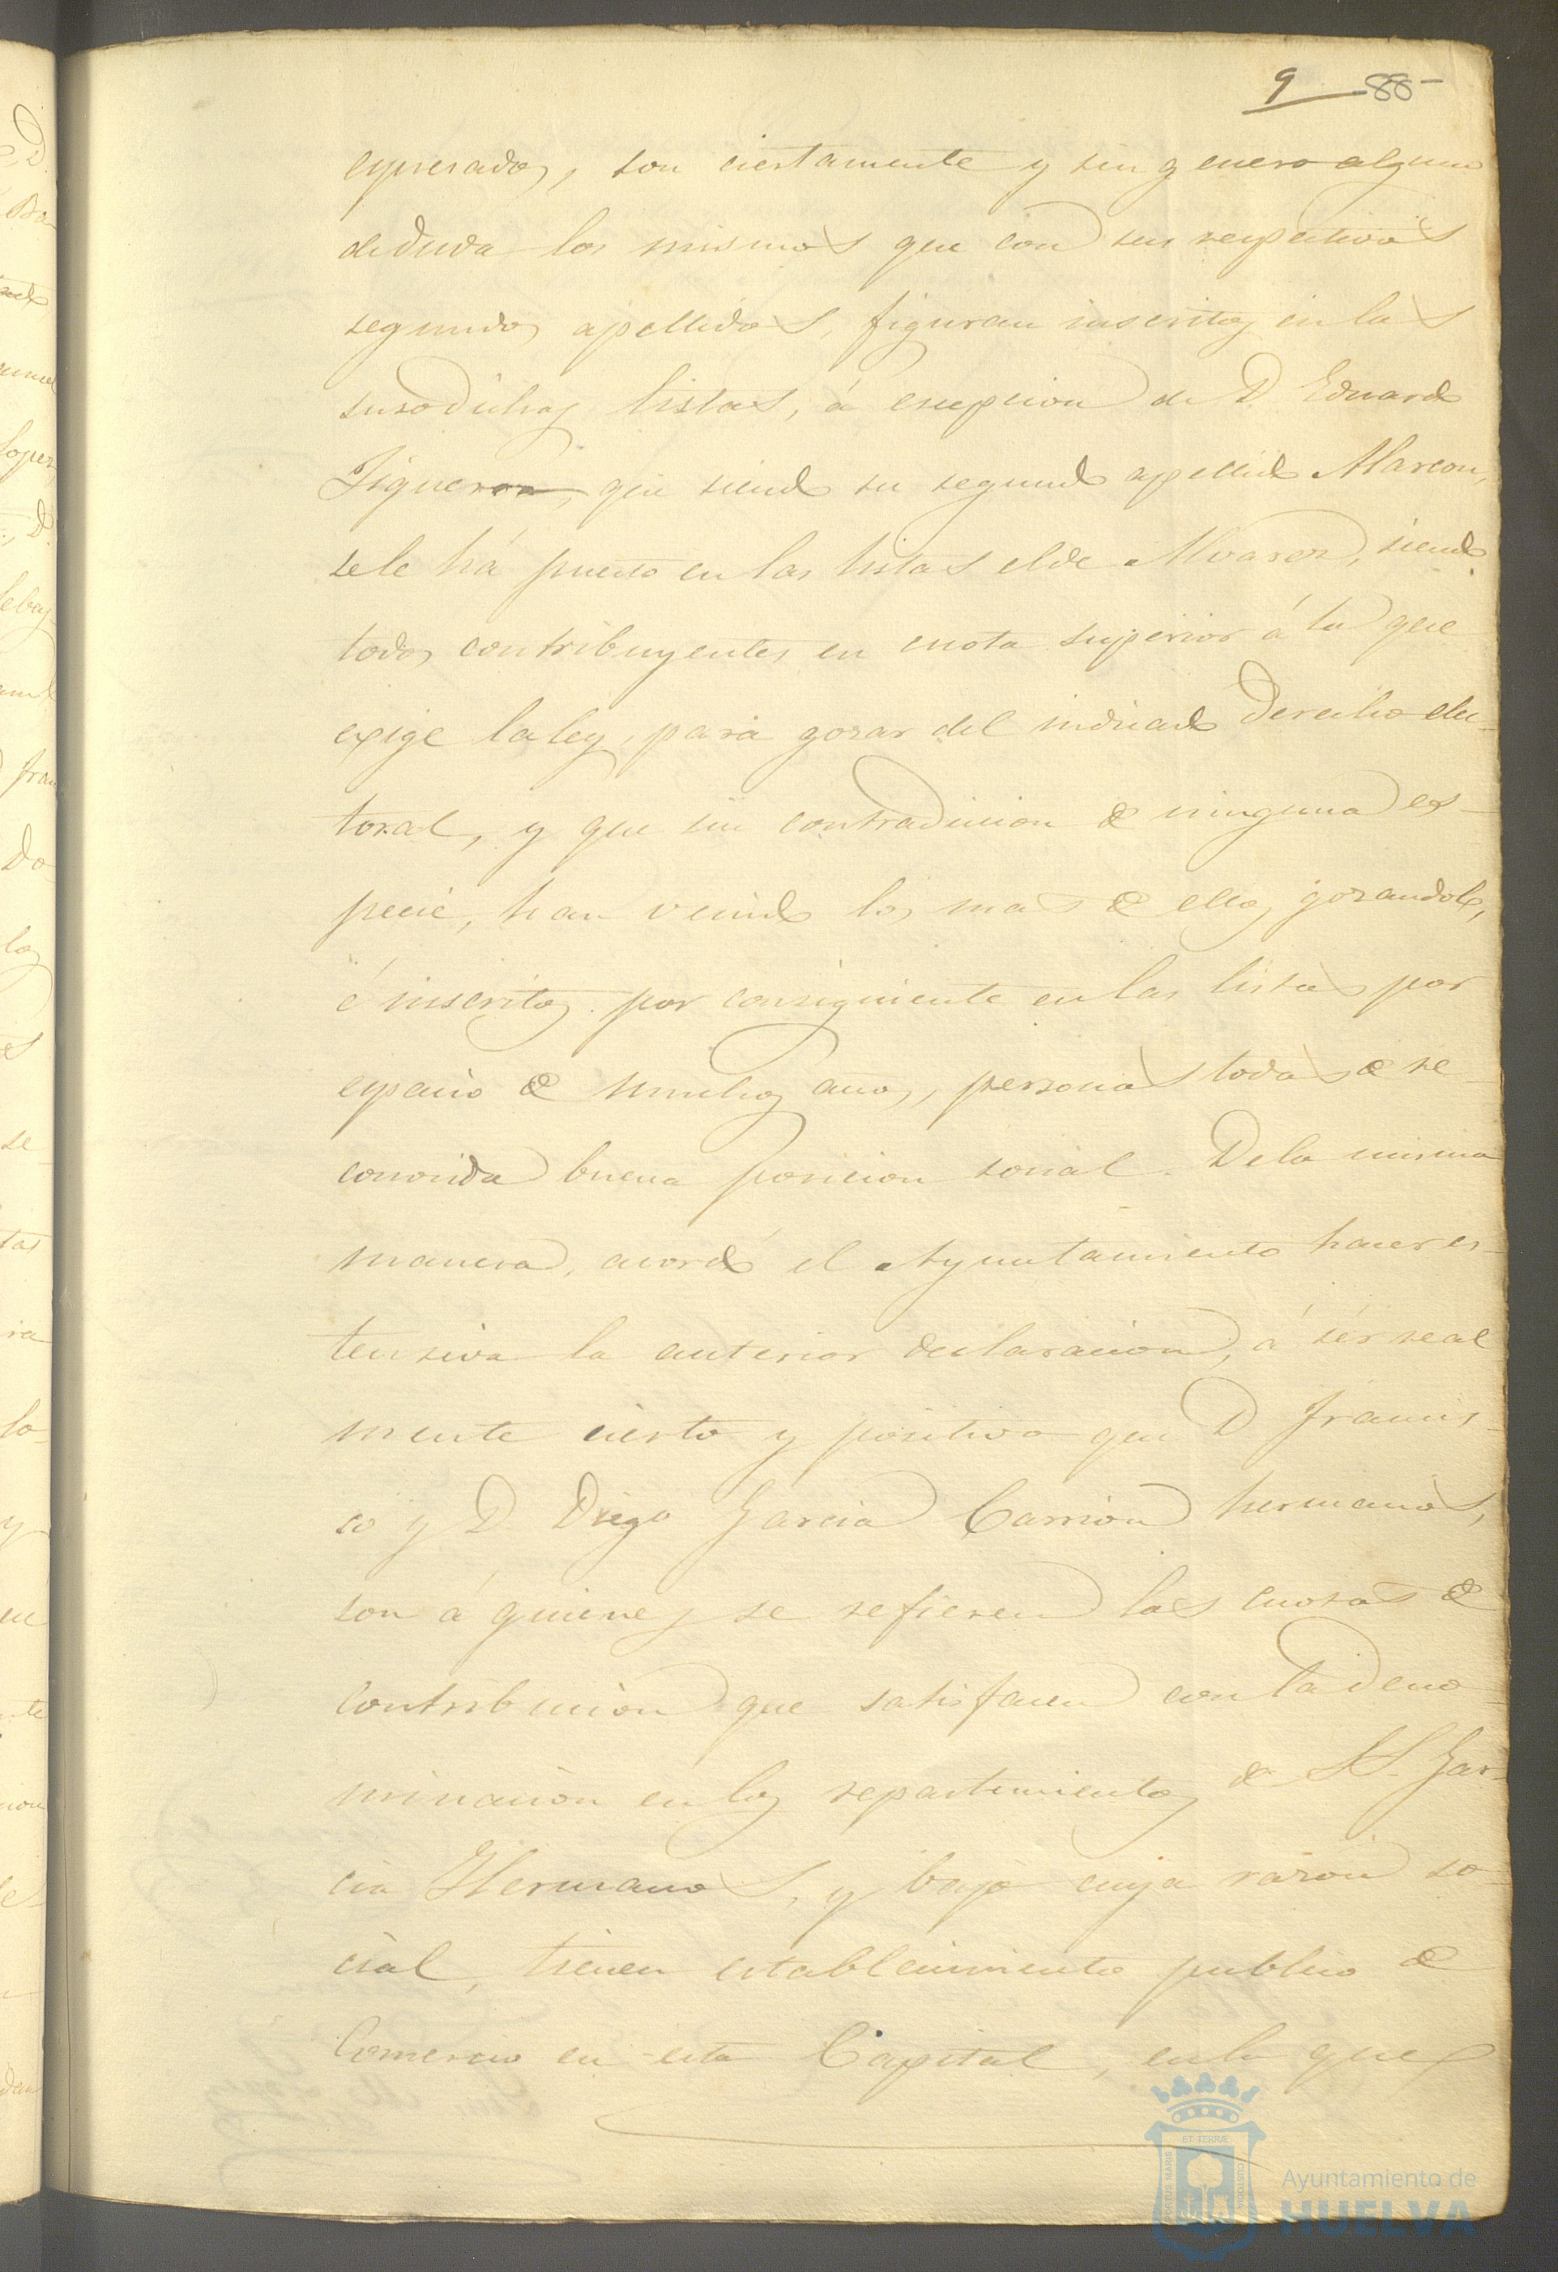 9 88
espresados, son ciertamente y sin genero alguno
de duda los mismos que con sus respectivos
segundos apellidos, figuran inscritos en las
susodichas listas, á escepcion de D. Eduardo
Figueroa, que siendo su segundo apellido Alarcon,
se le há puesto en las listas el de Alvarez, siendo
todos contribuyentes en cuota superior á la que
exige la ley, para gozar del indicado derecho elec-
toral, y que sin contradiccion de ninguna es-
pecie, han venido los mas de ellos gozandole,
é inscritos por consiguiente en las listas por
espacio de muchos años, personas todas de re-
conocida buena posicion social. De la misma
manera, acordó el Ayuntamiento hacer es-
tensiva la anterior declaracion, á sér real
mente cierto y positivo que D. Francis-
co y D. Diego Garcia Carrion hermanos,
son á quienes se refieren las cuotas de
contribucion que satisfacen con la deno-
minacion en los repartimientos de SS. Gar-
cia Hermanos, y bajo cuya razon so-
cial, tienen establecimiento publico de
Comercio en esta Capital, en la que
Ayuntamiento de
HUELVA